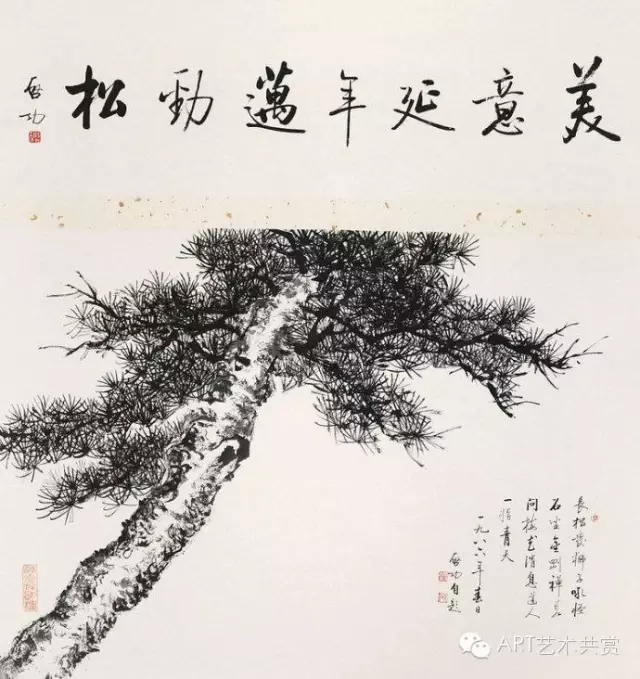 美意延年邁勁松
启功
長松發獅子吼怪
石坐金剛禪莫
问梅花消息道人
一指青天
一九八六年春日
启功自題
ART艺术共赏